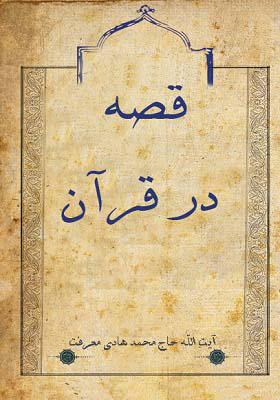 قصه
در قرآن
آیت الله حاج محمد هادی معرفت